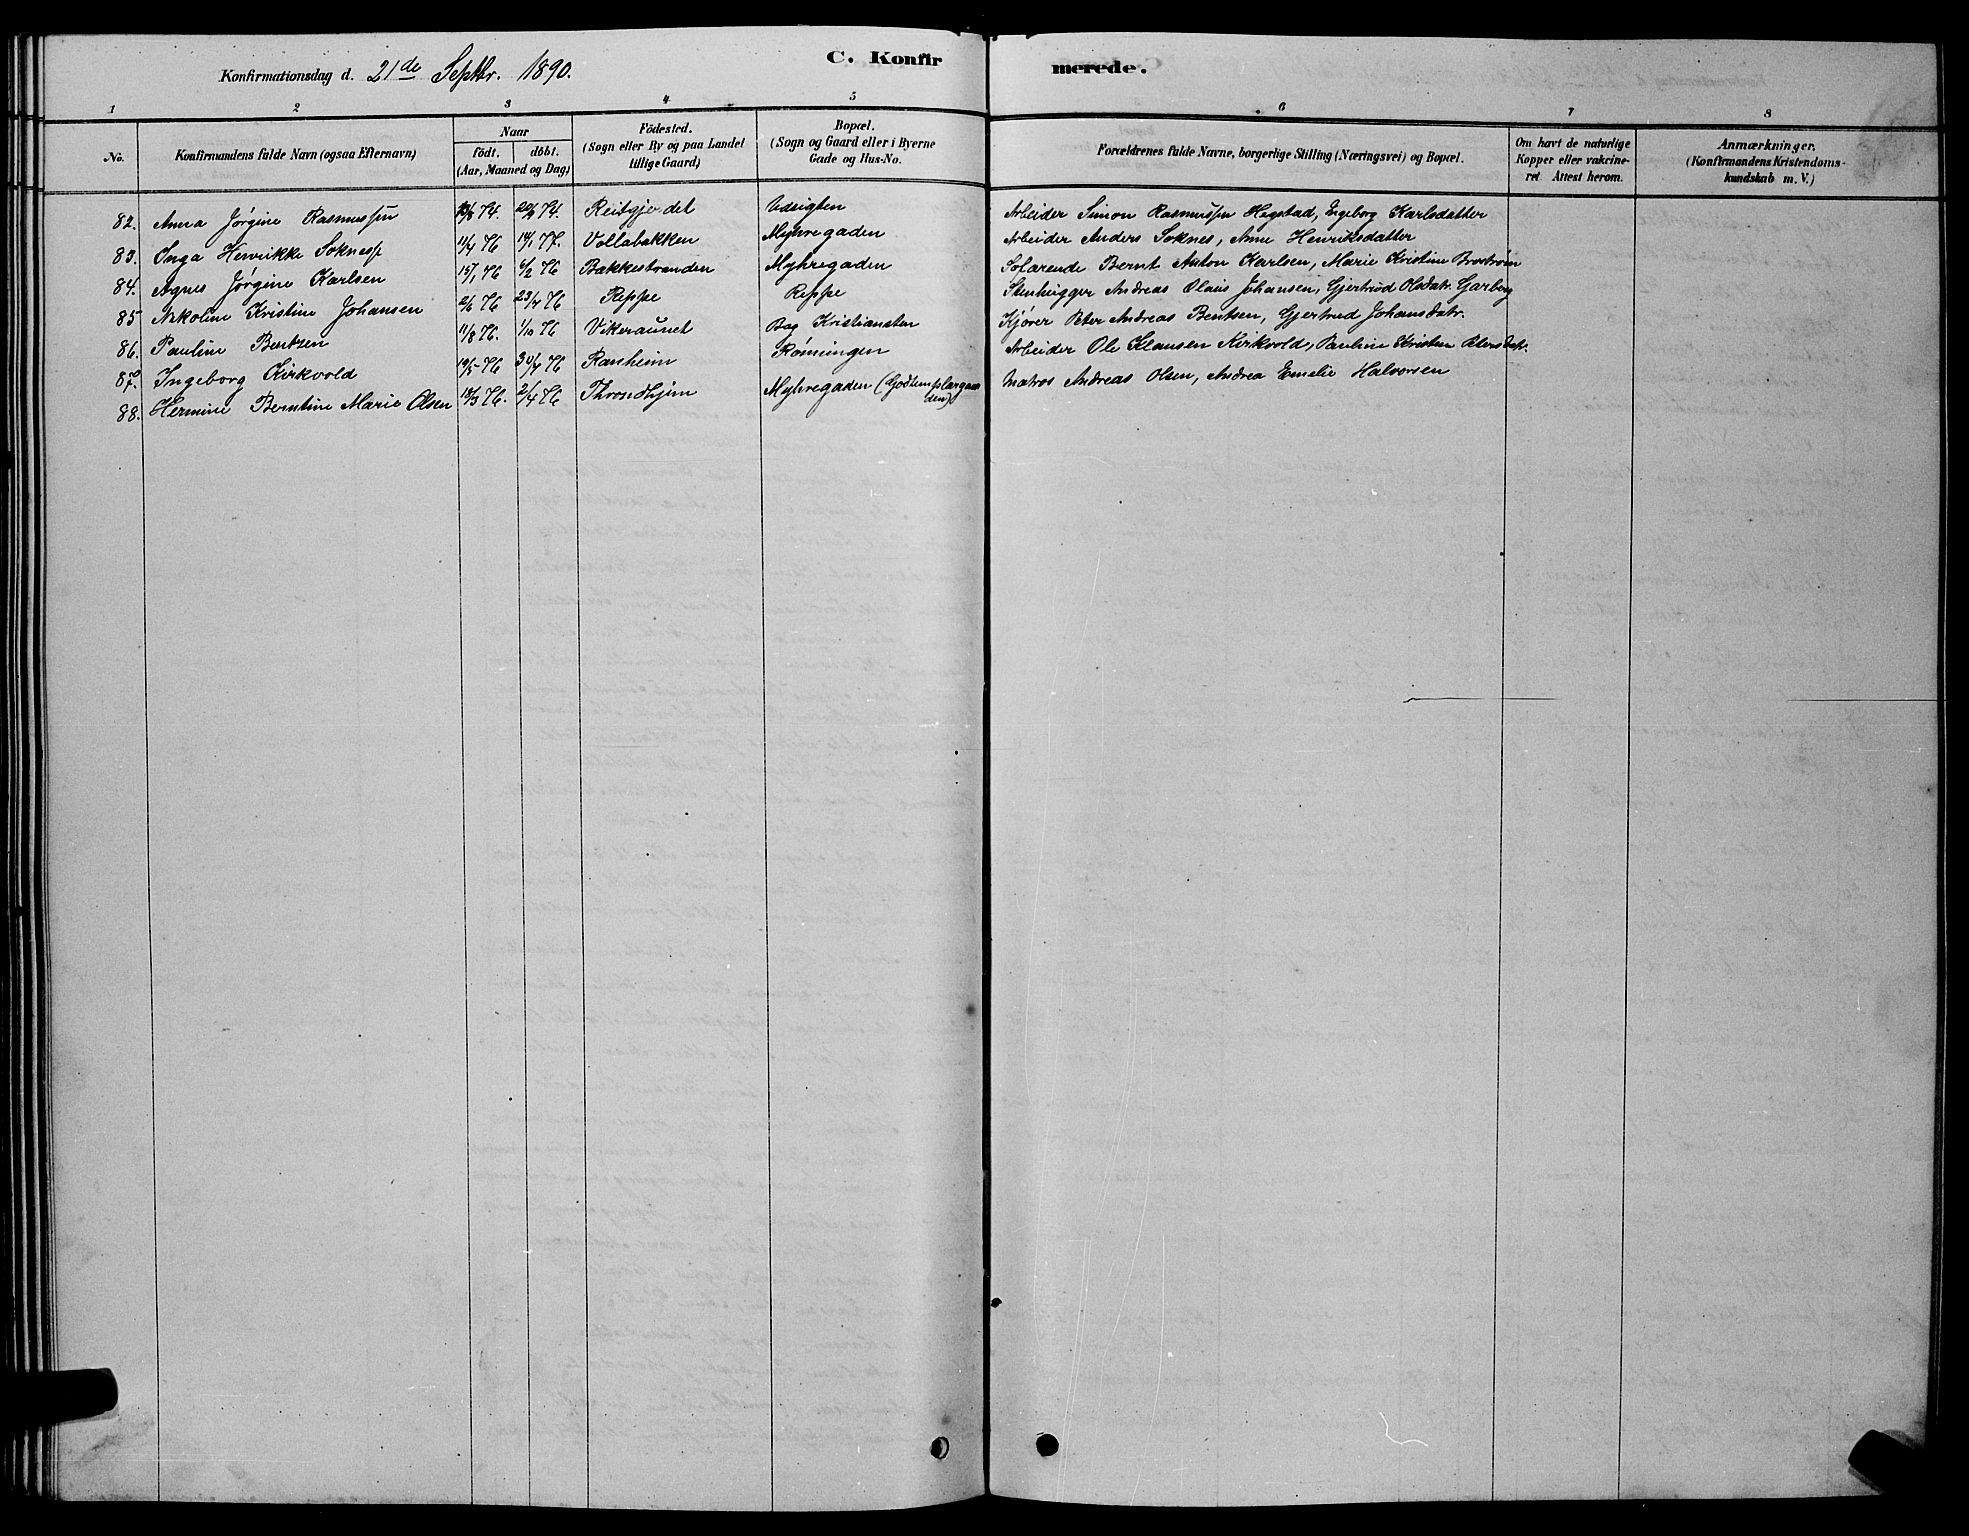 C. Konfirmerede.
Konfirmationsdag d. 21de Septbr. 1890.
1 2 3 4 5 6 7 8
No. Konfirmandens fulde Navn (ogsaa Efternavn) Naar födt. döbt. (Aar, Maaned og Dag) Födested. (Sogn eller By og paa Landet tillige Gaard) Bopæl. (Sogn og Gaard eller i Byerne Gade og Hus-No. Forældrenes fulde Navne, borgerlige Stilling (Næringsvei) og Bopæl. Om havt de naturlige Kopper eller vakcineret Attest herom. Anmærkninger. (Konfirmandens Kristendomskundskab m. V.)
82. Anna Jørgine Rasmussen 74. 20/9 74. Reitgjerdet Udsigten Arbeider Simon Rasmussen Hegstad, Ingeborg Karlsdatter
83. Inga Henrikke Soknes 11/4 76 14/1 77. Vollabakken Myhregaden Arbeider Anders Soknes, Anne Henriksdatter
84. Agnes Jørgine Karlsen 15/1 76 6/2 76 Bakkestranden Myhregaden Søfarende Bernt Anton Karlsen, Marie Kristine Brostrøm
85 Nikoline Kristine Johansen 2/6 76 23/7 76 Reppe Reppe Stenhugger Andreas Olaus Johansen, Gjertrud Olsdatr. Garberg
86. Pauline Bentzen 11/8 76. 1/10 76 Vikeraunet Bag Kristiansten Kjører Peter Andreas Bentsen, Gjertrud Johansdatr.
87. Ingeborg Kirkvold 19/5 76 30/7 76 Ranheim Rønningen Arbeider Ole Klausen Kirkvold, Pauline Kristine
88. Hermine Berntine Marie Olsen 18/3 76. 2/4 76 Throndhjem Myhregaden Matros Andreas Olsen, Andrea Emelie Halvorsen